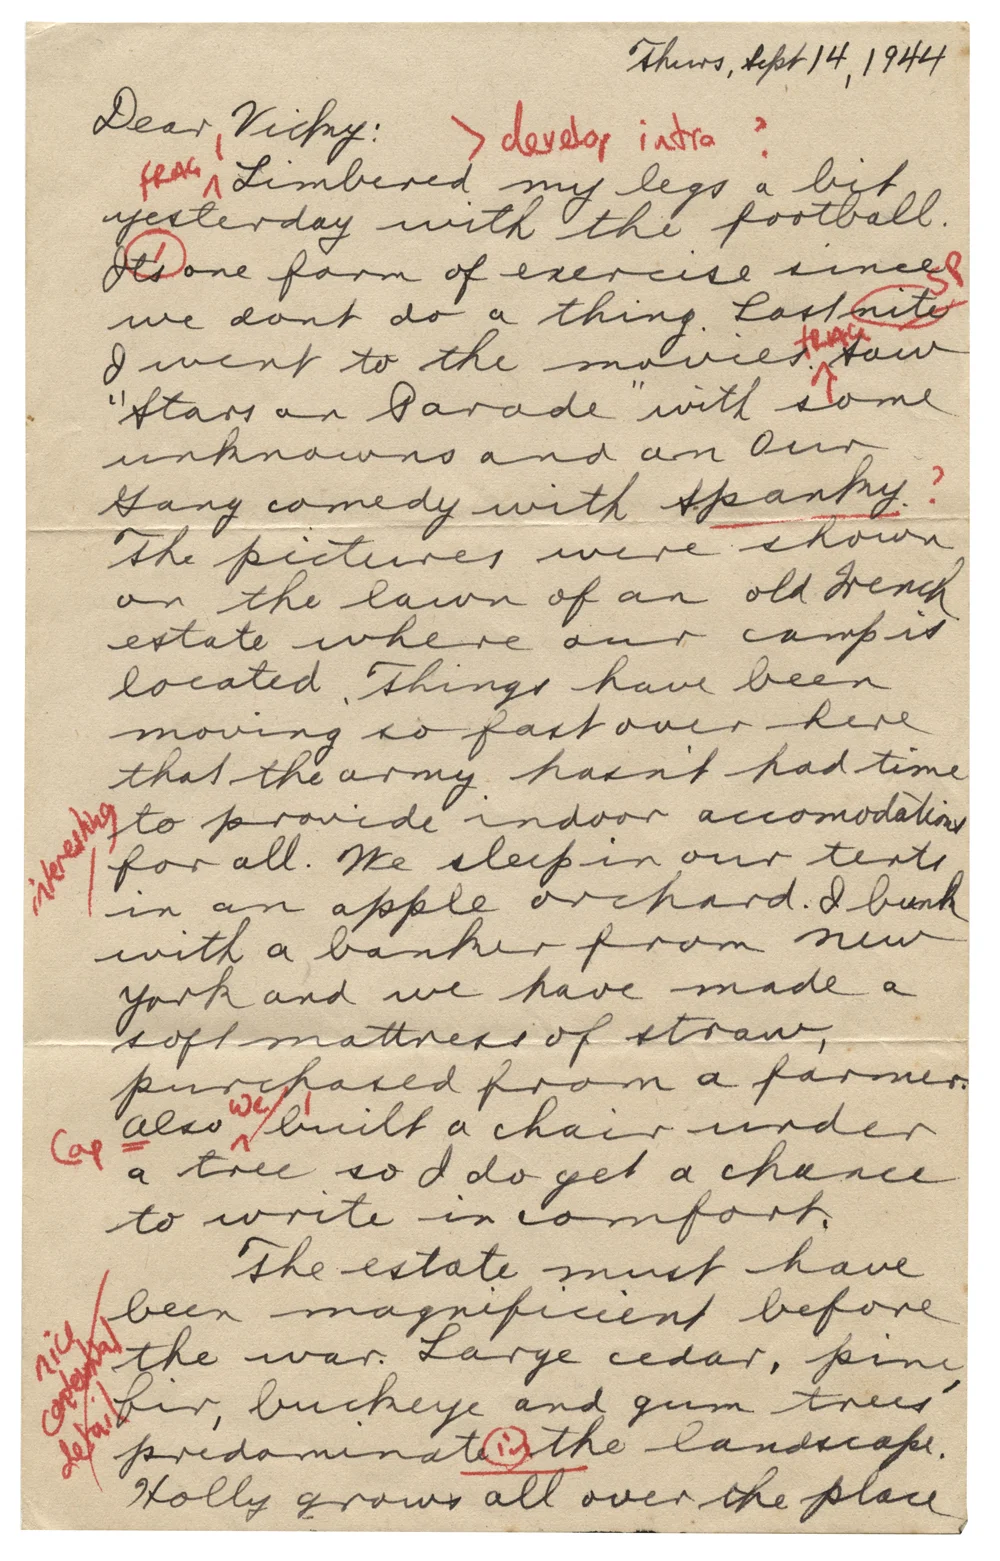 Thurs, Sept 14, 1944
Dear, Vicky:
> develop intro ?
FRAG ^ Limbered my legs a bit
yesterday with the football.
It's one form of exercise since
SP
we dont do a thing. Last nite
FRAG
I went to the movies. Saw
"Stars on Parade" with some
unknowns and an Our
Gang comedy with Spanky. ?
The pictures were shown
on the lawn of an old French
estate where our camp is
located. Things have been
moving so fast over here
that the army hasn't had time
interesting
to provide indoor accomodations
for all. We sleep in our tents
in an apple orchard. I bunk
with a banker from New
York and we have made a
soft mattress of straw,
purchased from a farmer.
Cap also we built a chair under
a tree so I do get a chance
to write in comfort.
The estate must have
been magnificient before
nice
detail
the war. Large cedar, pine,
fir, buckeye and gum trees
predominate in the landscape.
Holly grows all over the place